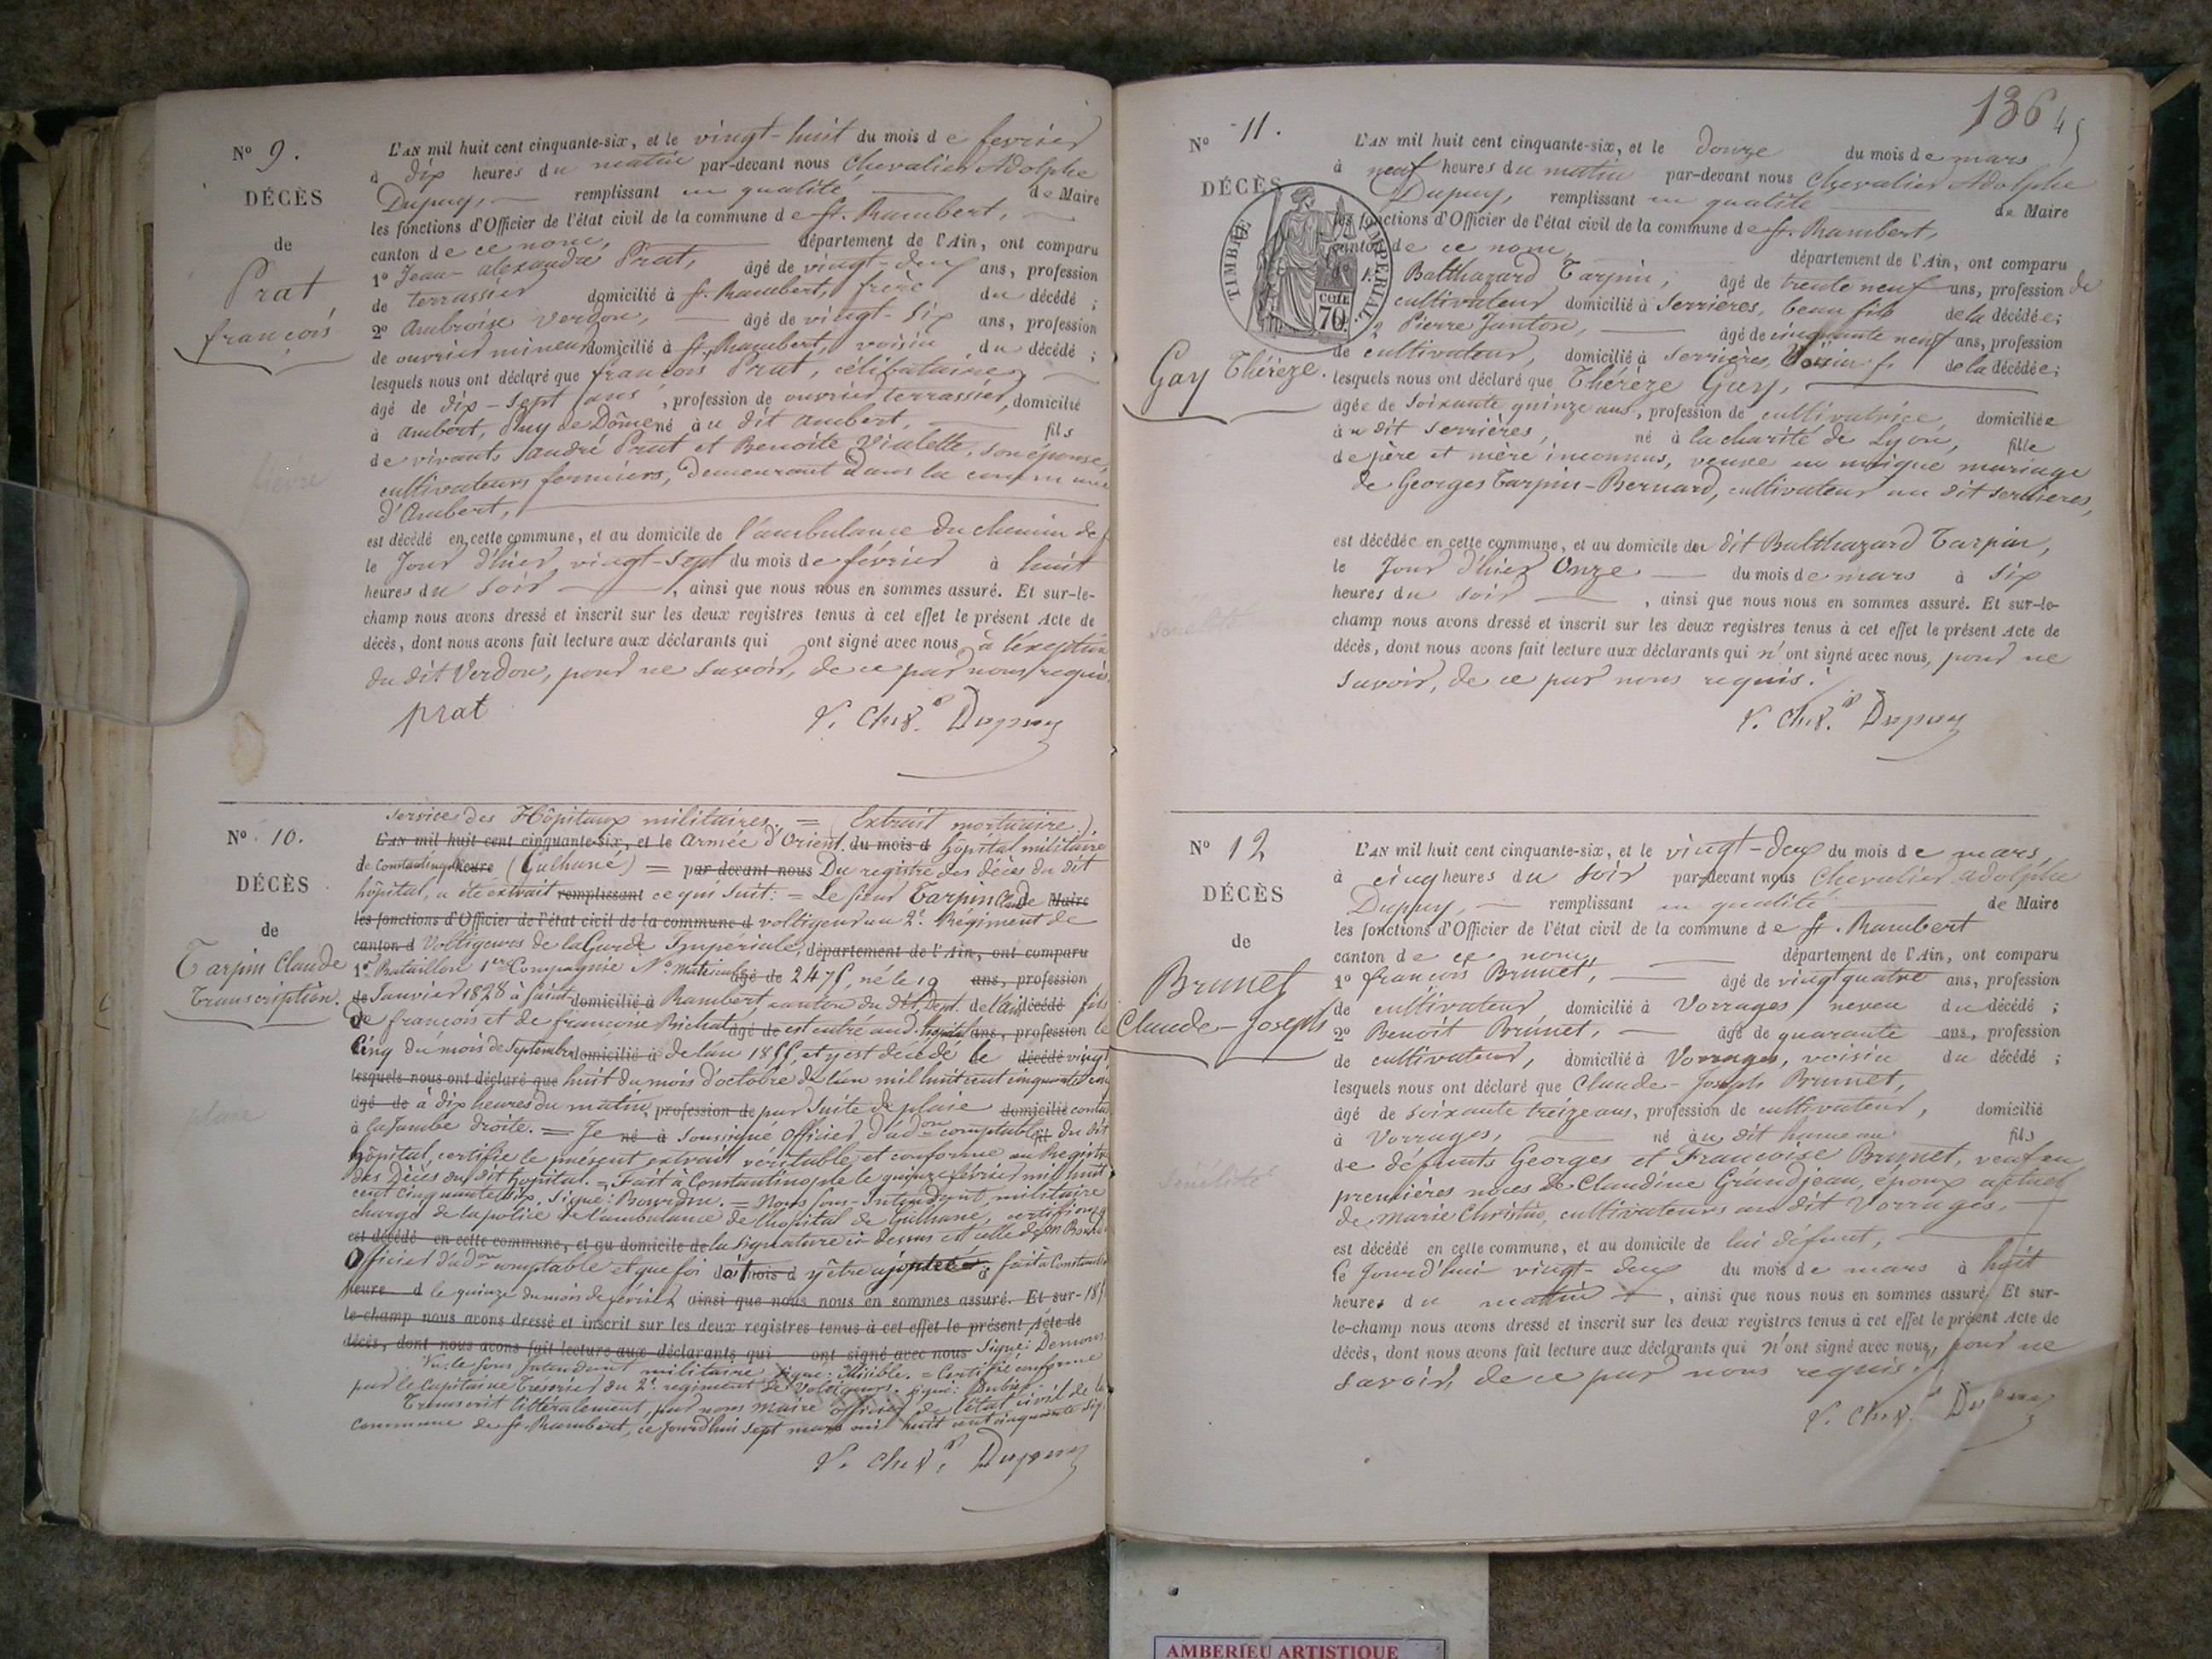 N° 9.
DÉCÈS
de
Prat
françois
L'AN mil huit cent cinquante-six, et le vingt-huit du mois de fevrier
à dix heures du matin par-devant nous Chevalier Adolphe
Dupuy, remplissant en qualité de Maire
les fonctions d'Officier de l'état civil de la commune de St. Rambert,
canton de ce nom, département de l'Ain, ont comparu
1° Jean-alexandre Prat, âgé de vingt-deux ans, profession
de terrassier domicilié à St. Rambert, frère du décédé ;
2° Ambroise Verdon, âgé de vingt-six ans, profession
de ouvrier mineur domicilié à St. Rambert, voisin du décédé ;
lesquels nous ont déclaré que françois Prat, célibataire,
âgé de dix-sept ans, profession de ouvrier terrassier, domicilié
à Ambert, Puy de Dôme né au dit Ambert, fils
de vivants andré Prat et Benoite Vialette, son épouse,
cultivateurs fermiers, demeurant dans la commune
d'Ambert,
est décédé en cette commune, et au domicile de l'ambulance du chemin de f
le Jour d'hier vingt-sept du mois de février à huit
heures du soir, ainsi que nous nous en sommes assuré. Et sur-le-
champ nous avons dressé et inscrit sur les deux registres tenus à cet effet le présent Acte de
décès, dont nous avons fait lecture aux déclarants qui ont signé avec nous, à l'exception
du dit Verdon, pour ne savoir, de ce par nous requis.
prat V. Chev.er Dupuy
N° 10.
DÉCÈS
de
Tarpin Claude
Transcription.
plaie
service des Hôpitaux militaires. = (Extrait mortuaire.)
L'AN mil huit cent cinquante-six, et le Armée d'Orient. du mois d hôpital militaire
de Constantinople heure (Gulhané) = par-devant nous Du registre des décès du dit
hôpital, a été extrait remplissant ce qui suit : = Le sieur Tarpin Claude Maire
les fonctions d'Officier de l'état civil de la commune d voltigeur au 2e. Régiment de
canton d Voltigeurs de la Garde Impériale, département de l'Ain, ont comparu
1er Bataillon 1ere Compagnie N° matricule âgé de 2475, né le 19 ans, profession
de Janvier 1828 à Saint- domicilié à Rambert, canton du dit, Dépt. de l'Ain décédé fils
De françois et de francoise Bichat âgé de est entré aud. hôpital ans, profession le
Cinq du mois de Septembre domicilié à de l'an 1855, et y est décédé le décédé vingt
lesquels nous ont déclaré que huit du mois d'octobre de l'an mil huit cent cinquante cinq
âgé de à dix heures du matin, profession de par suite de plaie domicilié contu
à la Jambe droite. = Je né à soussigné Officier d'ad.on comptable fil du dit
hôpital, certifie le présent extrait véritable et conforme au Registre
des Décès du dit hôpital. = Fait à Constantinople le quinze février mil huit
cent cinquante six. Signé : Bourdon. = Nous Sous-Intendant militaire
chargé de la police de l'ambulance de l'hôpital de Gulhané, certifions q
est décédé en cette commune, et au domicile de la signature ci-dessus est celle de M. Bourdon
Officier d'ad.on comptable et que foi doit mois d y être ajoutée. à fait à Constantin
heure d le quinze du mois de février ainsi que nous nous en sommes assuré. Et sur- 185
le-champ nous avons dressé et inscrit sur les deux registres tenus à cet effet le présent Acte de
décès, dont nous avons fait lecture aux déclarants qui ont signé avec nous Signé : Demons
Vu : le sous Intendant militaire signé : illisible. = Certifié conforme
par le Capitaine trésorier du 2e. régiment de Voltigeurs. signé : Dubief
Transcrit littéralement, par nous maire officier de l'état civil de la
commune de St. Rambert, ce Jourd'hui sept mars mil huit cent cinquante six.
V. Chev.er Dupuy
136
45
N° 11.
DÉCÈS
TIMBRE IMPÉRIAL
70
Gay Thérèze.
senilité
L'AN mil huit cent cinquante-six, et le Douze du mois de mars
à neuf heures du matin par-devant nous Chevalier Adolphe
Dupuy, remplissant en qualité de Maire
les fonctions d'Officier de l'état civil de la commune de St. Rambert,
canton de ce nom, département de l'Ain, ont comparu
1. Balthazard Tarpin, âgé de trente neuf ans, profession de
cultivateur domicilié à Serrières, beau fils de la décédée ;
2 Pierre Janton, âgé de cinquante neuf ans, profession
de cultivateur, domicilié à Serrières, Voisin de la décédée ;
lesquels nous ont déclaré que Thérèze Gay,
âgée de soixante quinze ans, profession de cultivatrice domiciliée
au dit Serrières, né à la charité de Lyon, fille
de père et mère inconnus, veuve en unique mariage
de Georges Tarpin-Bernard, cultivateur au dit Serrières,
est décédée en cette commune, et au domicile du dit Balthazard Tarpin,
le Jour d'hier Onze du mois de mars à six
heures du soir, ainsi que nous nous en sommes assuré. Et sur-le-
champ nous avons dressé et inscrit sur les deux registres tenus à cet effet le présent Acte de
décès, dont nous avons fait lecture aux déclarants qui n'ont signé avec nous, pour ne
savoir, de ce par nous requis.
V. Chev.er Dupuy
N° 12
DÉCÈS
de
Brunet
Claude-Joseph
sénilité
L'AN mil huit cent cinquante-six, et le vingt-deux du mois de mars,
à cinq heures du soir par-devant nous Chevalier adolphe
Dupuy, remplissant en qualité de Maire
les fonctions d'Officier de l'état civil de la commune de St. Rambert
canton de ce nom, département de l'Ain, ont comparu
1° françois Brunet, âgé de vingt quatre ans, profession
de cultivateur, domicilié à Vorrages, neveu du décédé ;
2° Benoit Brunet, âgé de quarante ans, profession
de cultivateur, domicilié à Vorrages, voisin du décédé ;
lesquels nous ont déclaré que Claude-Joseph Brunet,
âgé de soixante treize ans, profession de cultivateur, domicilié
à Vorrages, né au dit hameau fils
de défunts Georges et Francoise Brunet, veuf en
premières noces de Claudine Grandjean, époux actuel
de Marie Christin, cultivateurs au dit Vorrages,
est décédé en cette commune, et au domicile de lui défunt,
le Jourd'hui vingt-deux du mois de mars à huit
heures du matin, ainsi que nous nous en sommes assuré. Et sur-
le-champ nous avons dressé et inscrit sur les deux registres tenus à cet effet le présent Acte de
décès, dont nous avons fait lecture aux déclarants qui n'ont signé avec nous, pour ne
savoir, de ce par nous requis.
V. Chev.er Dupuy
AMBERIEU ARTISTIQUE